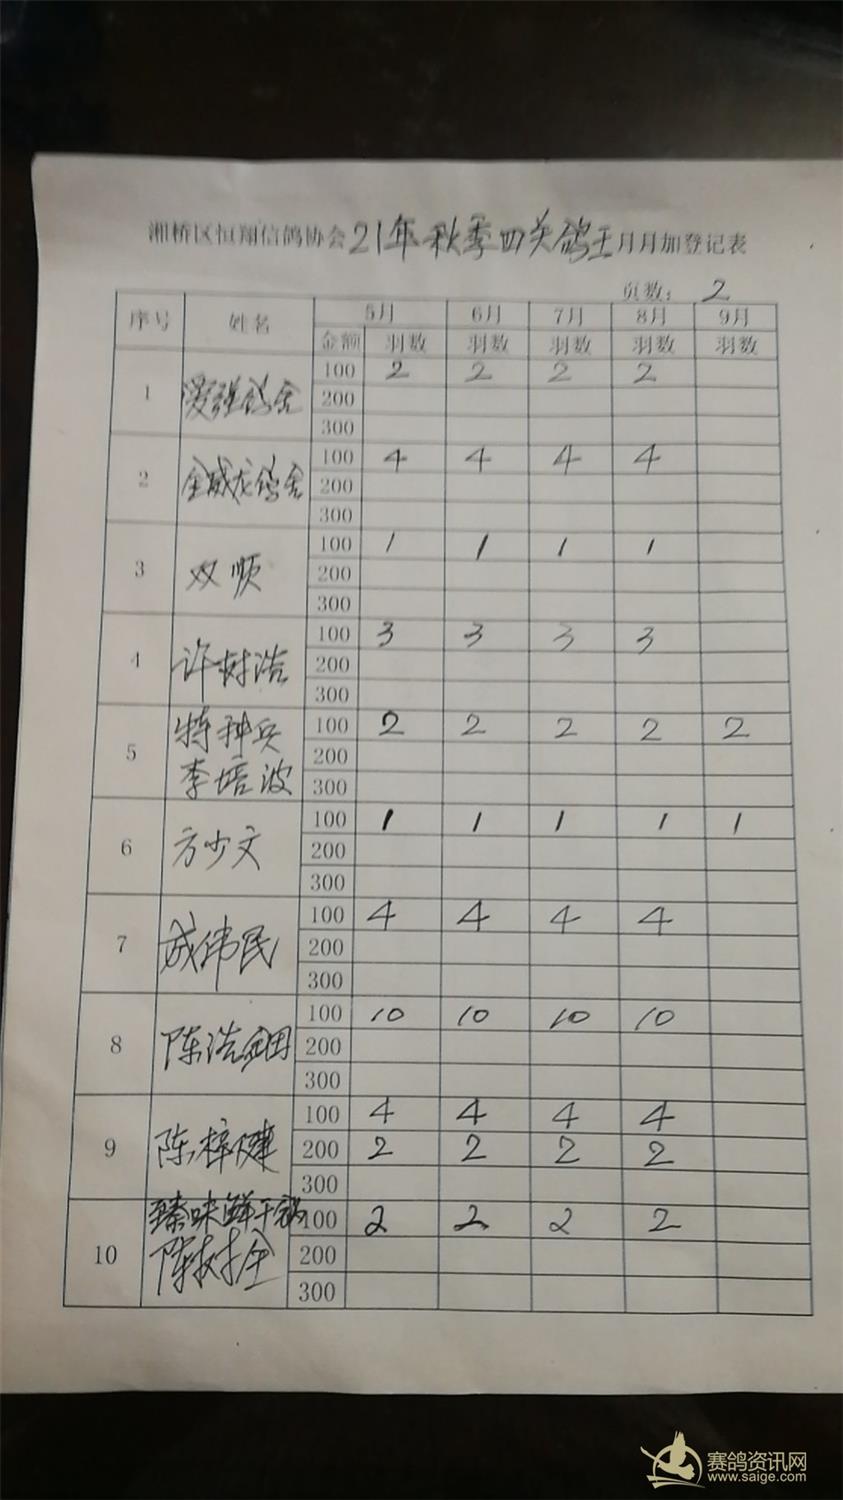 湘桥区恒翔信鸽协会21年秋季四关鸽王月月加登记表
页数: 2
序号 姓名 5月 6月 7月 8月 9月
金额 羽数 羽数 羽数 羽数 羽数
1 强鸽舍 100 2 2 2 2
200
300
2 金威龙鸽舍 100 4 4 4 4
200
300
3 双顺 100 1 1 1 1
200
300
4 许树浩 100 3 3 3 3
200
300
5 特种兵 100 2 2 2 2 2
李培波 200
300
6 方少文 100 1 1 1 1 1
200
300
7 成伟民 100 4 4 4 4
200
300
8 陈浩 100 10 10 10 10
200
300
9 陈梓健 100 4 4 4 4
200 2 2 2 2
300
10 臻味鲜干锅 100 2 2 2 2
陈树全 200
300
赛鸽资讯网
www.saige.com